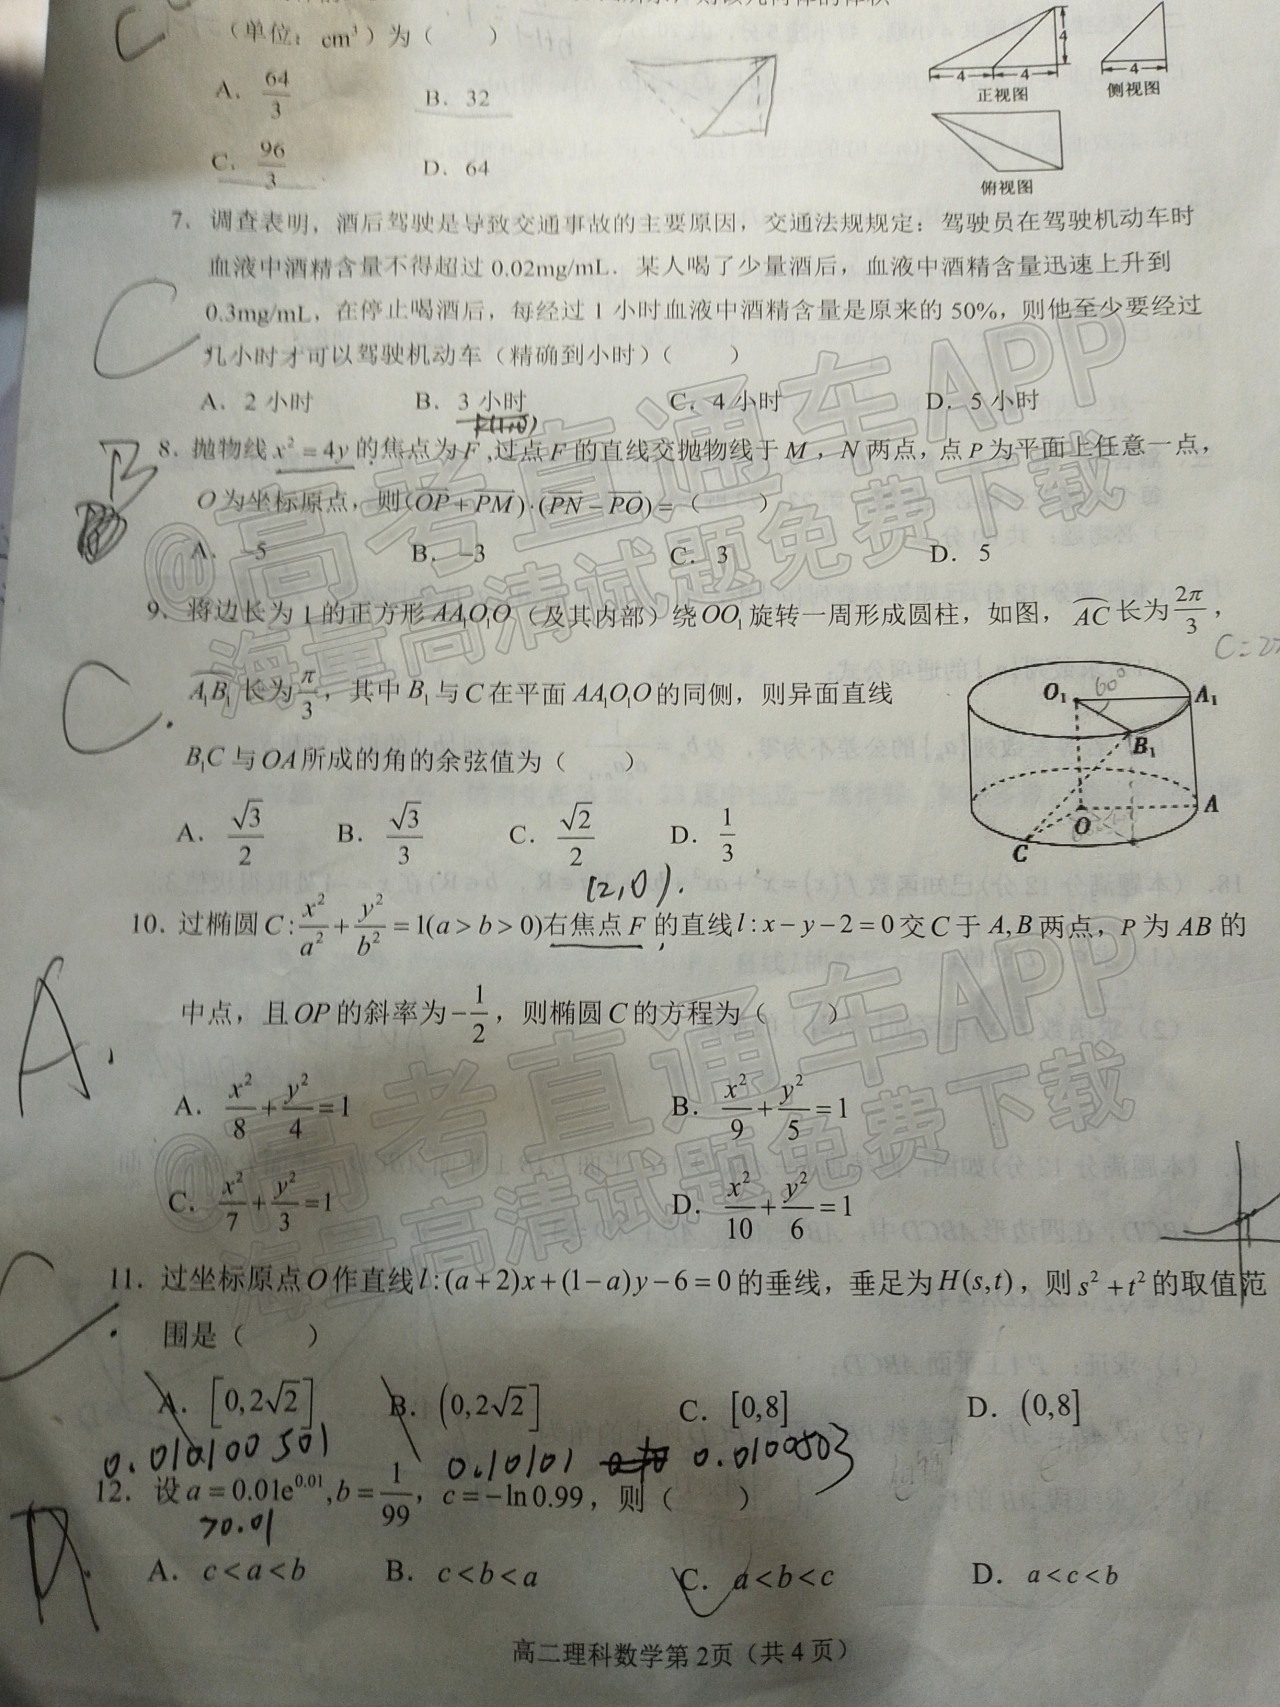 （单位：cm³）为（　　）
A. 64/3　B. 32
C. 96/3　D. 64
4
4　4　4
正视图　侧视图
俯视图
7. 调查表明，酒后驾驶是导致交通事故的主要原因，交通法规规定：驾驶员在驾驶机动车时
血液中酒精含量不得超过 0.02mg/mL．某人喝了少量酒后，血液中酒精含量迅速上升到
0.3mg/mL，在停止喝酒后，每经过 1 小时血液中酒精含量是原来的 50%，则他至少要经过
几小时才可以驾驶机动车（精确到小时）（　　）
A. 2 小时　B. 3 小时　C. 4 小时　D. 5 小时
8. 抛物线 x² = 4y 的焦点为 F ,过点 F 的直线交抛物线于 M ，N 两点，点 P 为平面上任意一点，
O 为坐标原点，则(OP + PM)·(PN − PO) =（　　）
A. −5　B. −3　C. 3　D. 5
9. 将边长为 1 的正方形 AA₁O₁O（及其内部）绕 OO₁ 旋转一周形成圆柱，如图，AC 长为 2π/3，
A₁B₁ 长为 π/3，其中 B₁ 与 C 在平面 AA₁O₁O 的同侧，则异面直线
B₁C 与 OA 所成的角的余弦值为（　　）
A. √3/2　B. √3/3　C. √2/2　D. 1/3
O₁　60°　A₁
B₁
O　A
C
(2,0).
10. 过椭圆 C: x²/a² + y²/b² = 1(a > b > 0)右焦点 F 的直线 l: x − y − 2 = 0 交 C 于 A, B 两点，P 为 AB 的
中点，且 OP 的斜率为 −1/2，则椭圆 C 的方程为（　　）
A. x²/8 + y²/4 = 1　B. x²/9 + y²/5 = 1
C. x²/7 + y²/3 = 1　D. x²/10 + y²/6 = 1
11. 过坐标原点 O 作直线 l: (a+2)x+(1−a)y−6=0 的垂线，垂足为 H(s,t)，则 s² + t² 的取值范
围是（　　）
A. [0,2√2]　B. (0,2√2]　C. [0,8]　D. (0,8]
0.010100501　0.10101　0.0100503
12. 设 a = 0.01e^0.01, b = 1/99，c = −ln0.99，则（　　）
>0.01
A. c < a < b　B. c < b < a　C. a < b < c　D. a < c < b
高二理科数学第 2页（共 4 页）
C
C
B
C.
A.
C.
A.
@高考直通车APP
海量高清试题免费下载
@高考直通车APP
海量高清试题免费下载